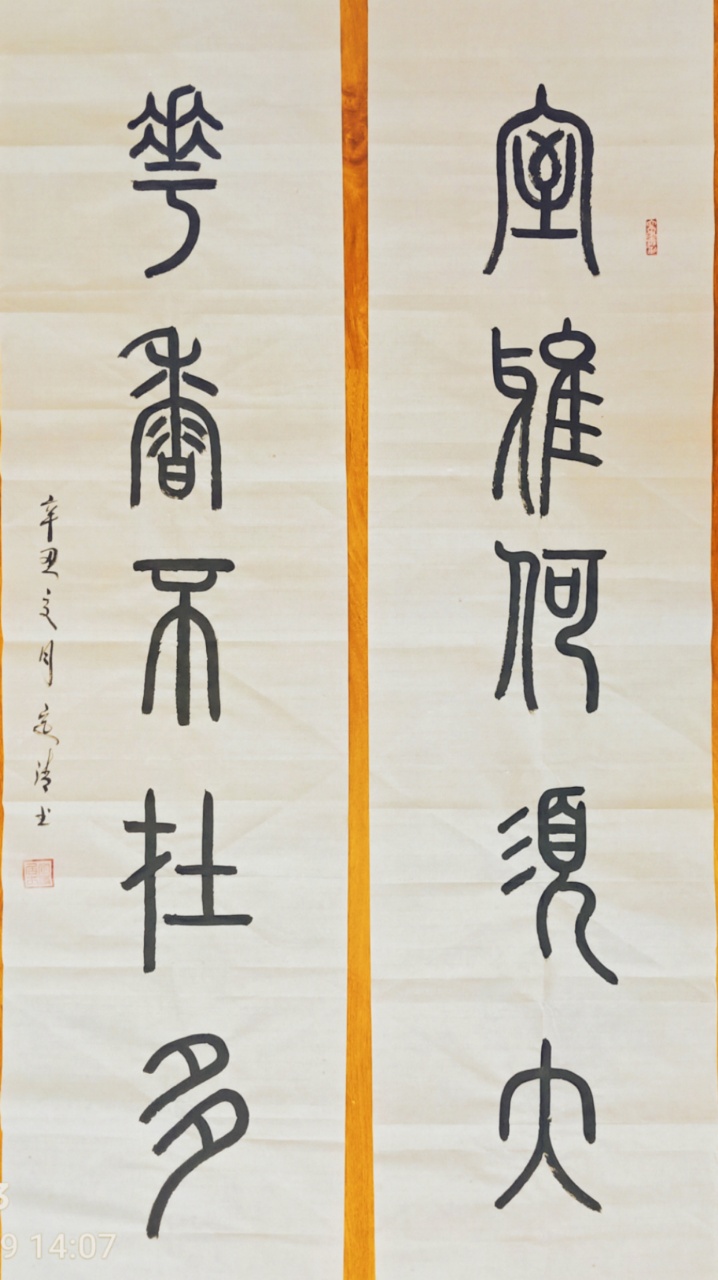 室雅何須大
華香不在多
辛丑 月 书
3
9 14:07